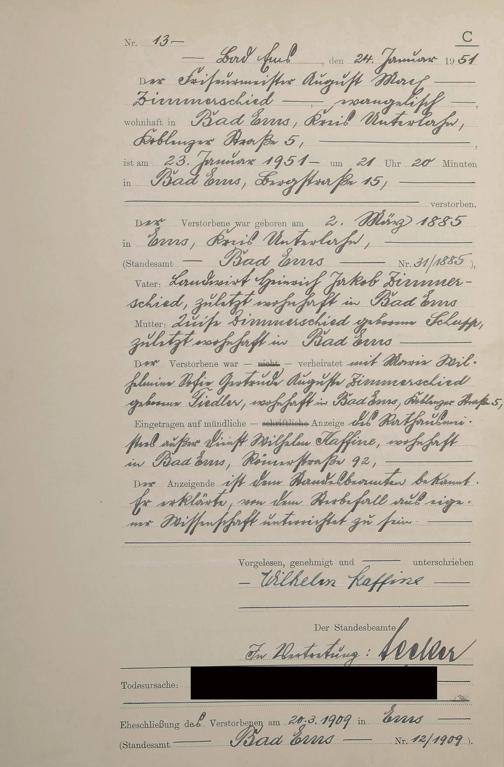 C
Nr. 13
Bad Ems, den 24. Januar 1951
Der Friseurmeister August
Zimmerschied, evangelisch,
wohnhaft in Bad Ems, Kreis Unterlahn,
Koblenzer Straße 5,
ist am 23. Januar 1951 um 21 Uhr 20 Minuten
in Bad Ems, Bergstraße 15,
verstorben.
Der Verstorbene war geboren am 2. März 1885
in Ems, Kreis Unterlahn,
(Standesamt Bad Ems Nr. 31/1885),
Vater: Landwirt Heinrich Jakob Zimmer-
schied, zuletzt wohnhaft in Bad Ems
Mutter: Luise Zimmerschied geborene Schupp,
zuletzt wohnhaft in Bad Ems
Der Verstorbene war – nicht – verheiratet mit Marie Wil-
helmine Sofie Gertrude Auguste Zimmerschied
geborene Fiedler, wohnhaft in Bad Ems, Koblenzer Straße 5,
Eingetragen auf mündliche – schriftliche – Anzeige des Rathausmei-
sters außer Dienst Wilhelm Kaffine, wohnhaft
in Bad Ems, Römerstraße 92,
Der Anzeigende ist dem Standesbeamten bekannt.
Er erklärte, von dem Sterbefall aus eige-
ner Wissenschaft unterrichtet zu sein
Vorgelesen, genehmigt und unterschrieben
Wilhelm Kaffine
Der Standesbeamte
In Vertretung:
Todesursache:
Eheschließung des Verstorbenen am 20.3.1909 in Ems
(Standesamt Bad Ems Nr. 12/1909).